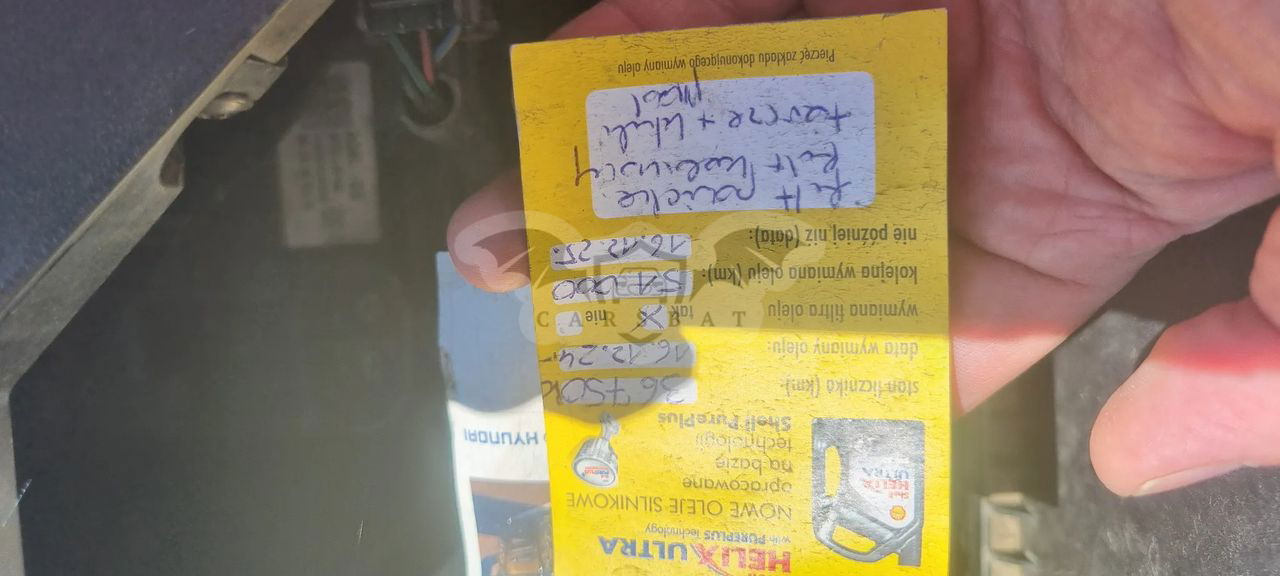 HELIX ULTRA
with PUREPLUS technology
NOWE OLEJE SILNIKOWE
opracowane
na bazie
technologii
Shell PurePlus
Shell
HELIX
ULTRA
stan licznika (km):
data wymiany oleju: 16.12.24
wymiana filtra oleju tak X nie
kolejna wymiana oleju (km): 51 000
nie później niż (data): 16.12.25.
filt
filt kabinowy
Pieczęć zakładu dokonującego wymiany oleju
HYUNDAI
CARSBAT